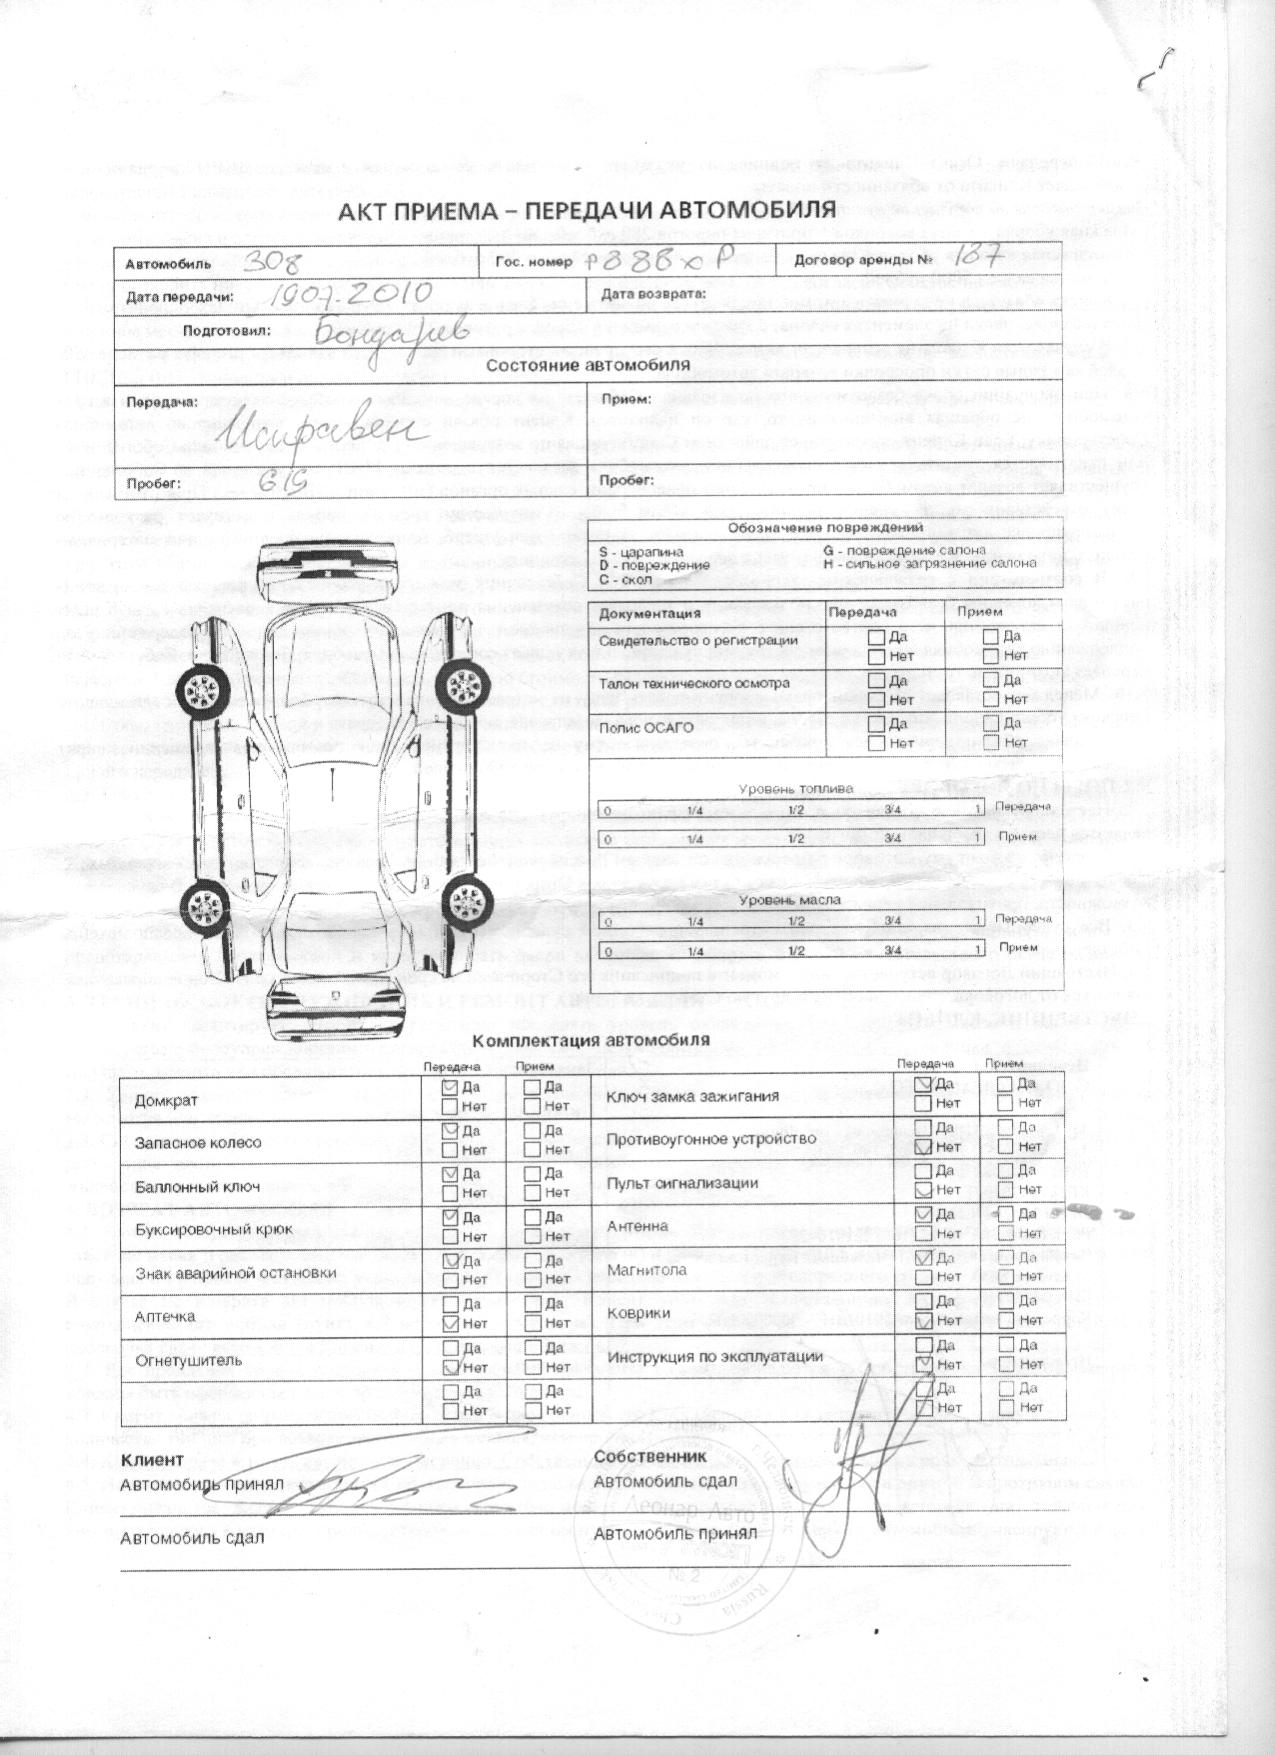 АКТ ПРИЕМА – ПЕРЕДАЧИ АВТОМОБИЛЯ
Автомобиль 308 Гос. номер р388хР Договор аренды № 137
Дата передачи: 19 07. 2010 Дата возврата:
Подготовил: Бондарев
Состояние автомобиля
Передача: Прием:
Исправен
Пробег: 619 Пробег:
Обозначение повреждений
S - царапина G - повреждение салона
D - повреждение H - сильное загрязнение салона
C - скол
Документация Передача Прием
Свидетельство о регистрации Да Да
Нет Нет
Талон технического осмотра Да Да
Нет Нет
Полис ОСАГО Да Да
Нет Нет
Уровень топлива
0 1/4 1/2 3/4 1 Передача
0 1/4 1/2 3/4 1 Прием
Уровень масла
0 1/4 1/2 3/4 1 Передача
0 1/4 1/2 3/4 1 Прием
Комплектация автомобиля
Передача Прием Передача Прием
Домкрат Да Да Ключ замка зажигания Да Да
Нет Нет Нет Нет
Запасное колесо Да Да Противоугонное устройство Да Да
Нет Нет Нет Нет
Баллонный ключ Да Да Пульт сигнализации Да Да
Нет Нет Нет Нет
Буксировочный крюк Да Да Антенна Да Да
Нет Нет Нет Нет
Знак аварийной остановки Да Да Магнитола Да Да
Нет Нет Нет Нет
Аптечка Да Да Коврики Да Да
Нет Нет Нет Нет
Огнетушитель Да Да Инструкция по эксплуатации Да Да
Нет Нет Нет Нет
Да Да Да Да
Нет Нет Нет Нет
Клиент Собственник
Автомобиль принял Автомобиль сдал
Леонар Авто
Автомобиль сдал Автомобиль принял
№ 2
Russia